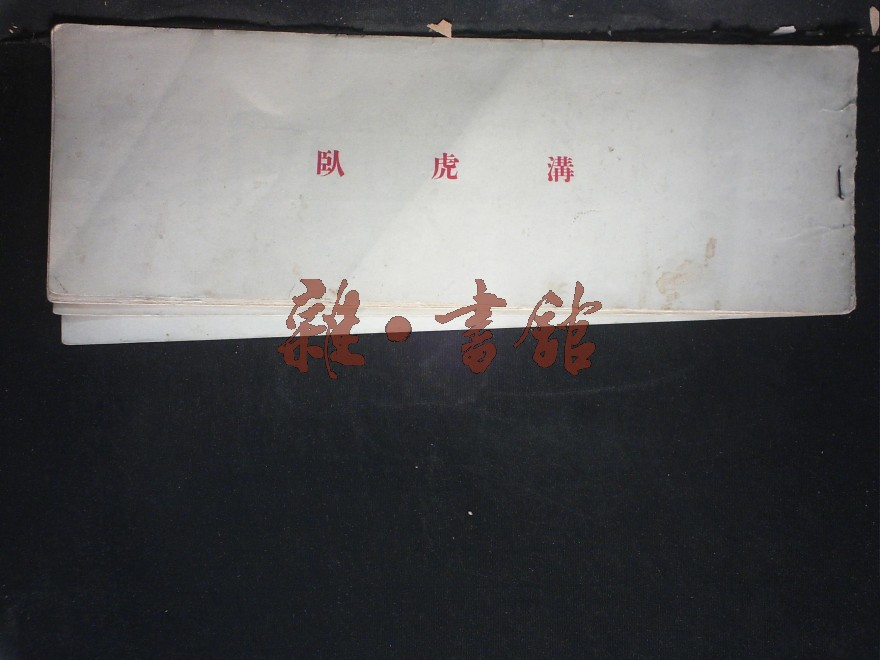 臥虎溝
雜·書館